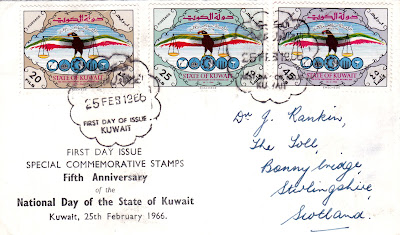 دولة الكويت
20
STATE OF KUWAIT
دولة الكويت
25
STATE OF KUWAIT
دولة الكويت
45
STATE OF KUWAIT
25 FEB 1966
FIRST DAY OF ISSUE
KUWAIT
25 FEB 1966
KUWAIT
FIRST DAY ISSUE
SPECIAL COMMEMORATIVE STAMPS
Fifth Anniversary
of the
National Day of the State of Kuwait
Kuwait, 25th February 1966.
Dr G. Rankin,
The Toll,
Bonnybridge,
Stirlingshire,
Scotland.